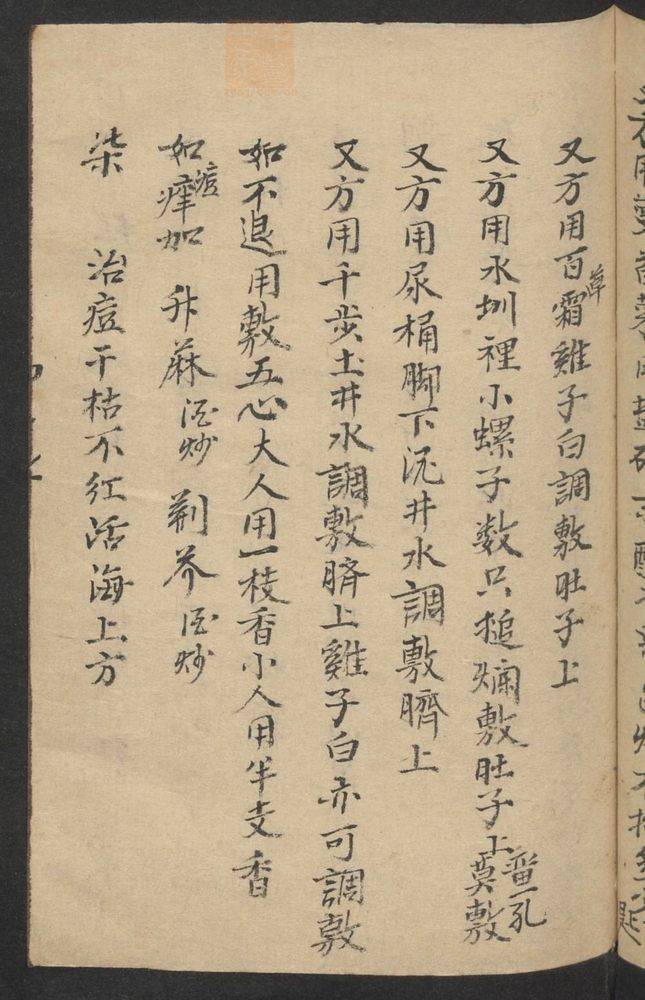 又方用百草霜雞子白調敷肚子上
又方用水圳裡小螺子数只搥爛敷肚子上留一孔莫敷
又方用尿桶脚下泥井水調敷臍上
又方用千步土井水調敷臍上雞子白亦可調敷
如不退用敷五心大人用一枝香小人用半支香
如痘痒加 升蔴酒炒 荆芥酒炒
柒 治痘干枯不红活海上方